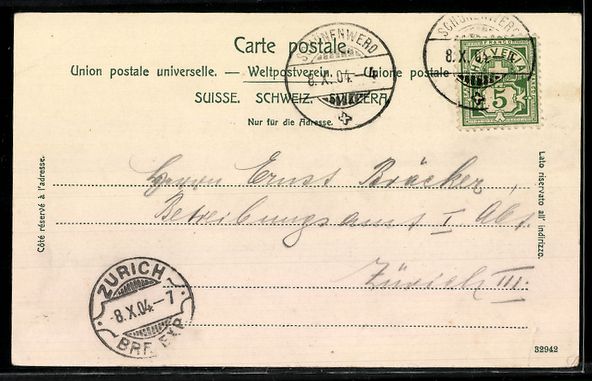 Carte postale.
Union postale universelle. — Weltpostverein. — Unione postale
SUISSE. SCHWEIZ. SVIZZERA.
Nur für die Adresse.
SCHÖNENWERD
8.X.04.-4
SCHÖNENWERD
8.X.
FRANCO
HELVETIA
5
Côté réservé à l'adresse.
Lato riservato all' indirizzo.
Herrn Ernst Bräcker,
Betreibungsamt I Abt.
Zürich III.
ZÜRICH
-8.X.04.-7
BRF. EXP.
32942